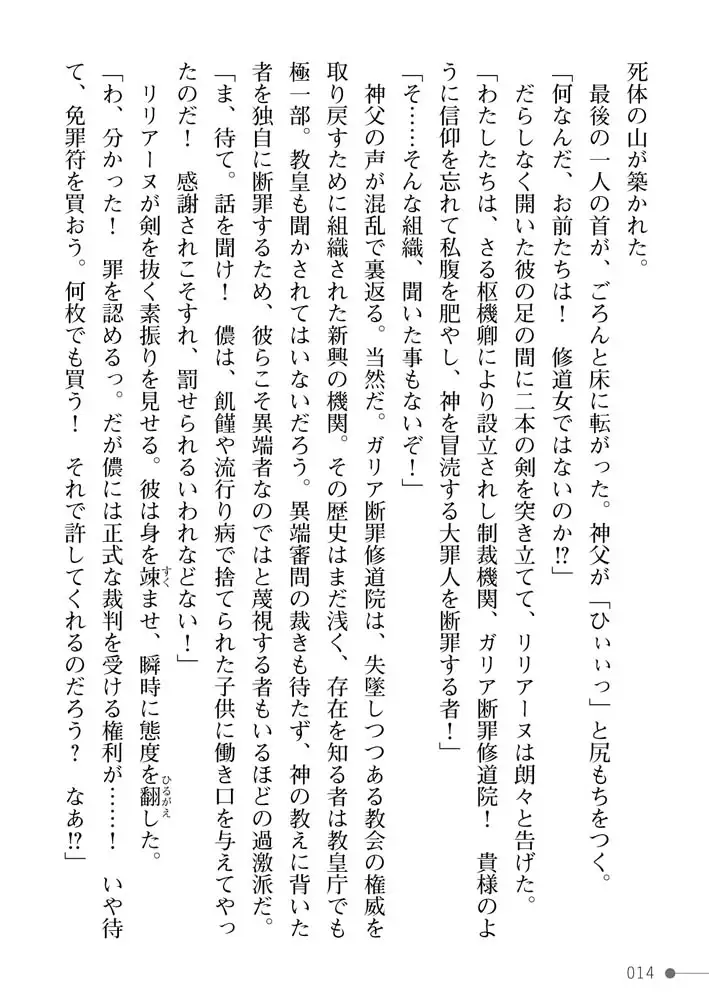 死体の山が築かれた。
最後の一人の首が、ごろんと床に転がった。神父が「ひぃぃっ」と尻もちをつく。
「何なんだ、お前たちは！　修道女ではないのか!?」
だらしなく開いた彼の足の間に二本の剣を突き立てて、リリアーヌは朗々と告げた。
「わたしたちは、さる枢機卿により設立されし制裁機関、ガリア断罪修道院！　貴様のよ
うに信仰を忘れて私腹を肥やし、神を冒涜する大罪人を断罪する者！」
「そ……そんな組織、聞いた事もないぞ！」
神父の声が混乱で裏返る。当然だ。ガリア断罪修道院は、失墜しつつある教会の権威を
取り戻すために組織された新興の機関。その歴史はまだ浅く、存在を知る者は教皇庁でも
極一部。教皇も聞かされてはいないだろう。異端審問の裁きも待たず、神の教えに背いた
者を独自に断罪するため、彼らこそ異端者なのではと蔑視する者もいるほどの過激派だ。
「ま、待て。話を聞け！　儂は、飢饉や流行り病で捨てられた子供に働き口を与えてやっ
たのだ！　感謝されこそすれ、罰せられるいわれなどない！」
リリアーヌが剣を抜く素振りを見せる。彼は身を竦すくませ、瞬時に態度を翻ひるがえした。
「わ、分かった！　罪を認めるっ。だが儂には正式な裁判を受ける権利が……！　いや待
て、免罪符を買おう。何枚でも買う！　それで許してくれるのだろう？　なあ!?」
014